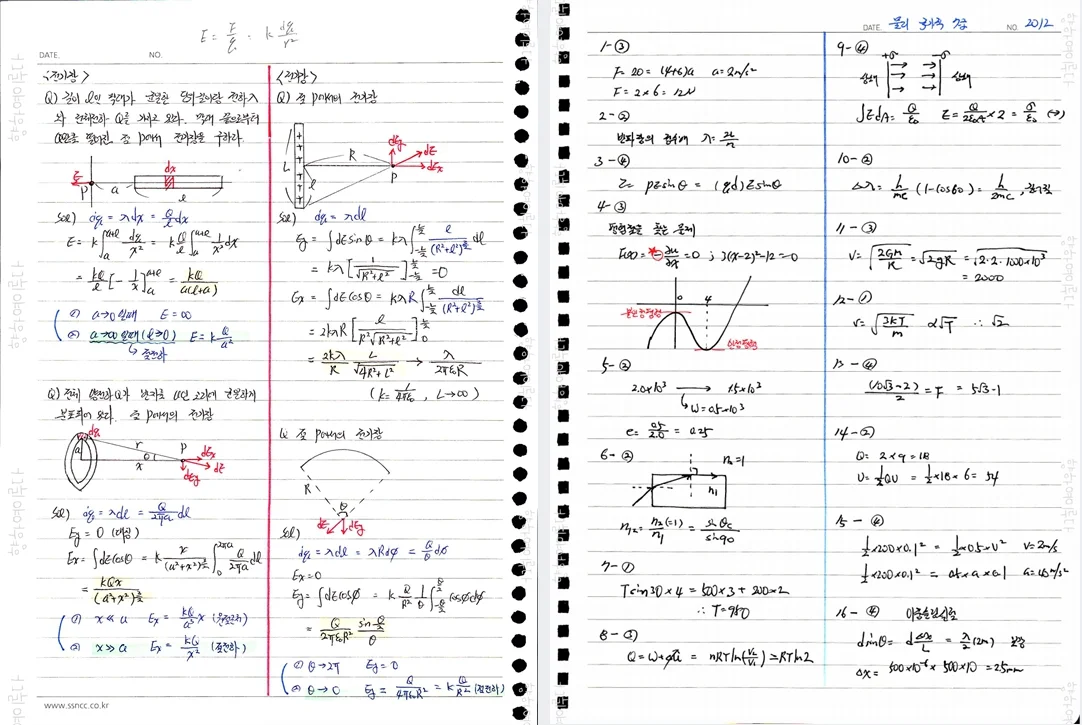 E = F/q = k dq/r²
DATE. NO.
<전기장>
Q) 길이 l인 막대가 균일한 전하
와 전체전하 Q를 가지고 있다. 막대 끝으로부터
a만큼 떨어진 점 P에서 전기장을 구하라.
E P a dx l
sol) dq = λdx = Q/l dx
E = k∫ₐ^(a+l) dq/x² = k Q/l ∫ₐ^(a+l) 1/x² dx
= kQ/l [-1/x]ₐ^(a+l) = kQ/a(l+a)
a→0 일때 E = ∞
a→∞ 일때 (l→0) E = k Q/a²
점전하
Q) 전체 반지름 a인 고리에 균일하게
분포되어 있다. 점 P에서의 전기장
dq a r x θ P dEx dE dEy
sol) dq = λdl = Q/2πa dl
Ey = 0 (대칭)
Ex = ∫dEcosθ = k x/(a²+x²)^(3/2) ∫₀^(2πa) Q/2πa dl
= kQx/(a²+x²)^(3/2)
x ≪ a Ex = kQ/a³ x
x ≫ a Ex = kQ/x² (점전하)
www.ssncc.co.kr
<전기장>
Q) 점 P에서의 전기장
L l R P dEy dE dEx
sol) dq = λdl
Ey = ∫dEsinθ = kλ∫_(-L/2)^(L/2) l/(R²+l²)^(3/2) dl
= kλ[1/√(R²+l²)]_(-L/2)^(L/2) = 0
Ex = ∫dEcosθ = kλR∫_(-L/2)^(L/2) dl/(R²+l²)^(3/2)
= 2kλR[l/R²√(R²+l²)]₀^(L/2)
= 2kλ/R L/√(4R²+L²) → λ/2πε₀R
(k = 1/4πε₀, L→∞)
Q 점 P에서의 전기장
R θ dE dEy
sol)
dq = λdl = λRdφ = Q/θ dφ
Ex = 0
Ey = ∫dEcosφ = k Q/R² 1/θ ∫_(-θ/2)^(θ/2) cosφdφ
= Q/2πε₀R² sin(θ/2)/θ
θ→2π Ey = 0
θ→0 Ey = Q/4πε₀R² = k Q/R² (점전하)
DATE. 물리 NO. 2012
1-③
F = 20 = (4+6)a a = 2m/s²
F = 2×6 = 12N
2-②
λ = 2L/n
3-④
τ = pEsinθ = (qd)Esinθ
4-③
평형점을 찾는 문제
F(x) = -∂u/∂x = 0 ; 3(x-2)²-12 = 0
0 4
불안정평형점
안정평형점
5-②
2.0×10³ → 1.5×10³
W = 0.5×10³
e = 0.5/2.0 = 0.25
6-②
n₂ = 1
n₁
n₁₂ = n₂(=1)/n₁ = sinθc/sin90
7-①
Tsin30×4 = 500×3 + 200×2
∴ T = 950
8-①
Q = W + ΔU = nRTln(V₂/V₁) = RTln2
9-④
+σ -σ
∫EdA = Q/ε₀ E = Q/2ε₀A × 2 = σ/ε₀ (→)
10-②
Δλ = h/mc (1-cos60) = h/2mc
11-③
v = √(2GM/R) = √(2gR) = √(2·2·1000×10³)
= 2000
12-①
v = √(3kT/m) α√T ∴ √2
13-④
(10√3-2)/2 = F = 5√3-1
14-②
Q = 2×9 = 18
U = ½QV = ½×18×6 = 54
15-④
½×200×0.1² = ½×0.5×v² v = 2m/s
½×200×0.1² = 0.5×a×0.1 a = 20m/s²
16-④ 이중슬릿실험
dsinθ = d Δx/L = λ/2(2m) 보강
Δx = 500×10⁻⁶ × 500×10 = 25mm